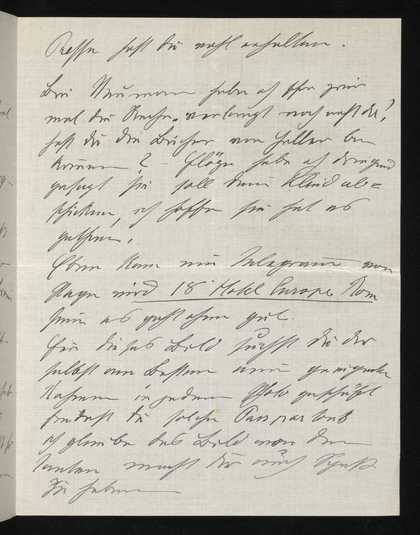 Presse hast du wohl erhalten.
Bei Neumann habe ich schon zwei
mal die Rechn. verlangt noch nicht da!
hast du die Bücher von Heller be
kommen? – habe ich dringend
gesagt sie soll dein Kleid ab=
schicken, ich hoffe sie hat es
gethan.
Eben kam ein Telegramm von
wird 18 Hotel Europe Rom
sein es geht ihm gut.
Für dieses Bild suchst du dir
selbst am Besten einen geeigneten
Rahmen in jedem Geschäft
findest du solche Passpartouts
ich glaube das Bild von den
macht dir auch Spaß
zu haben